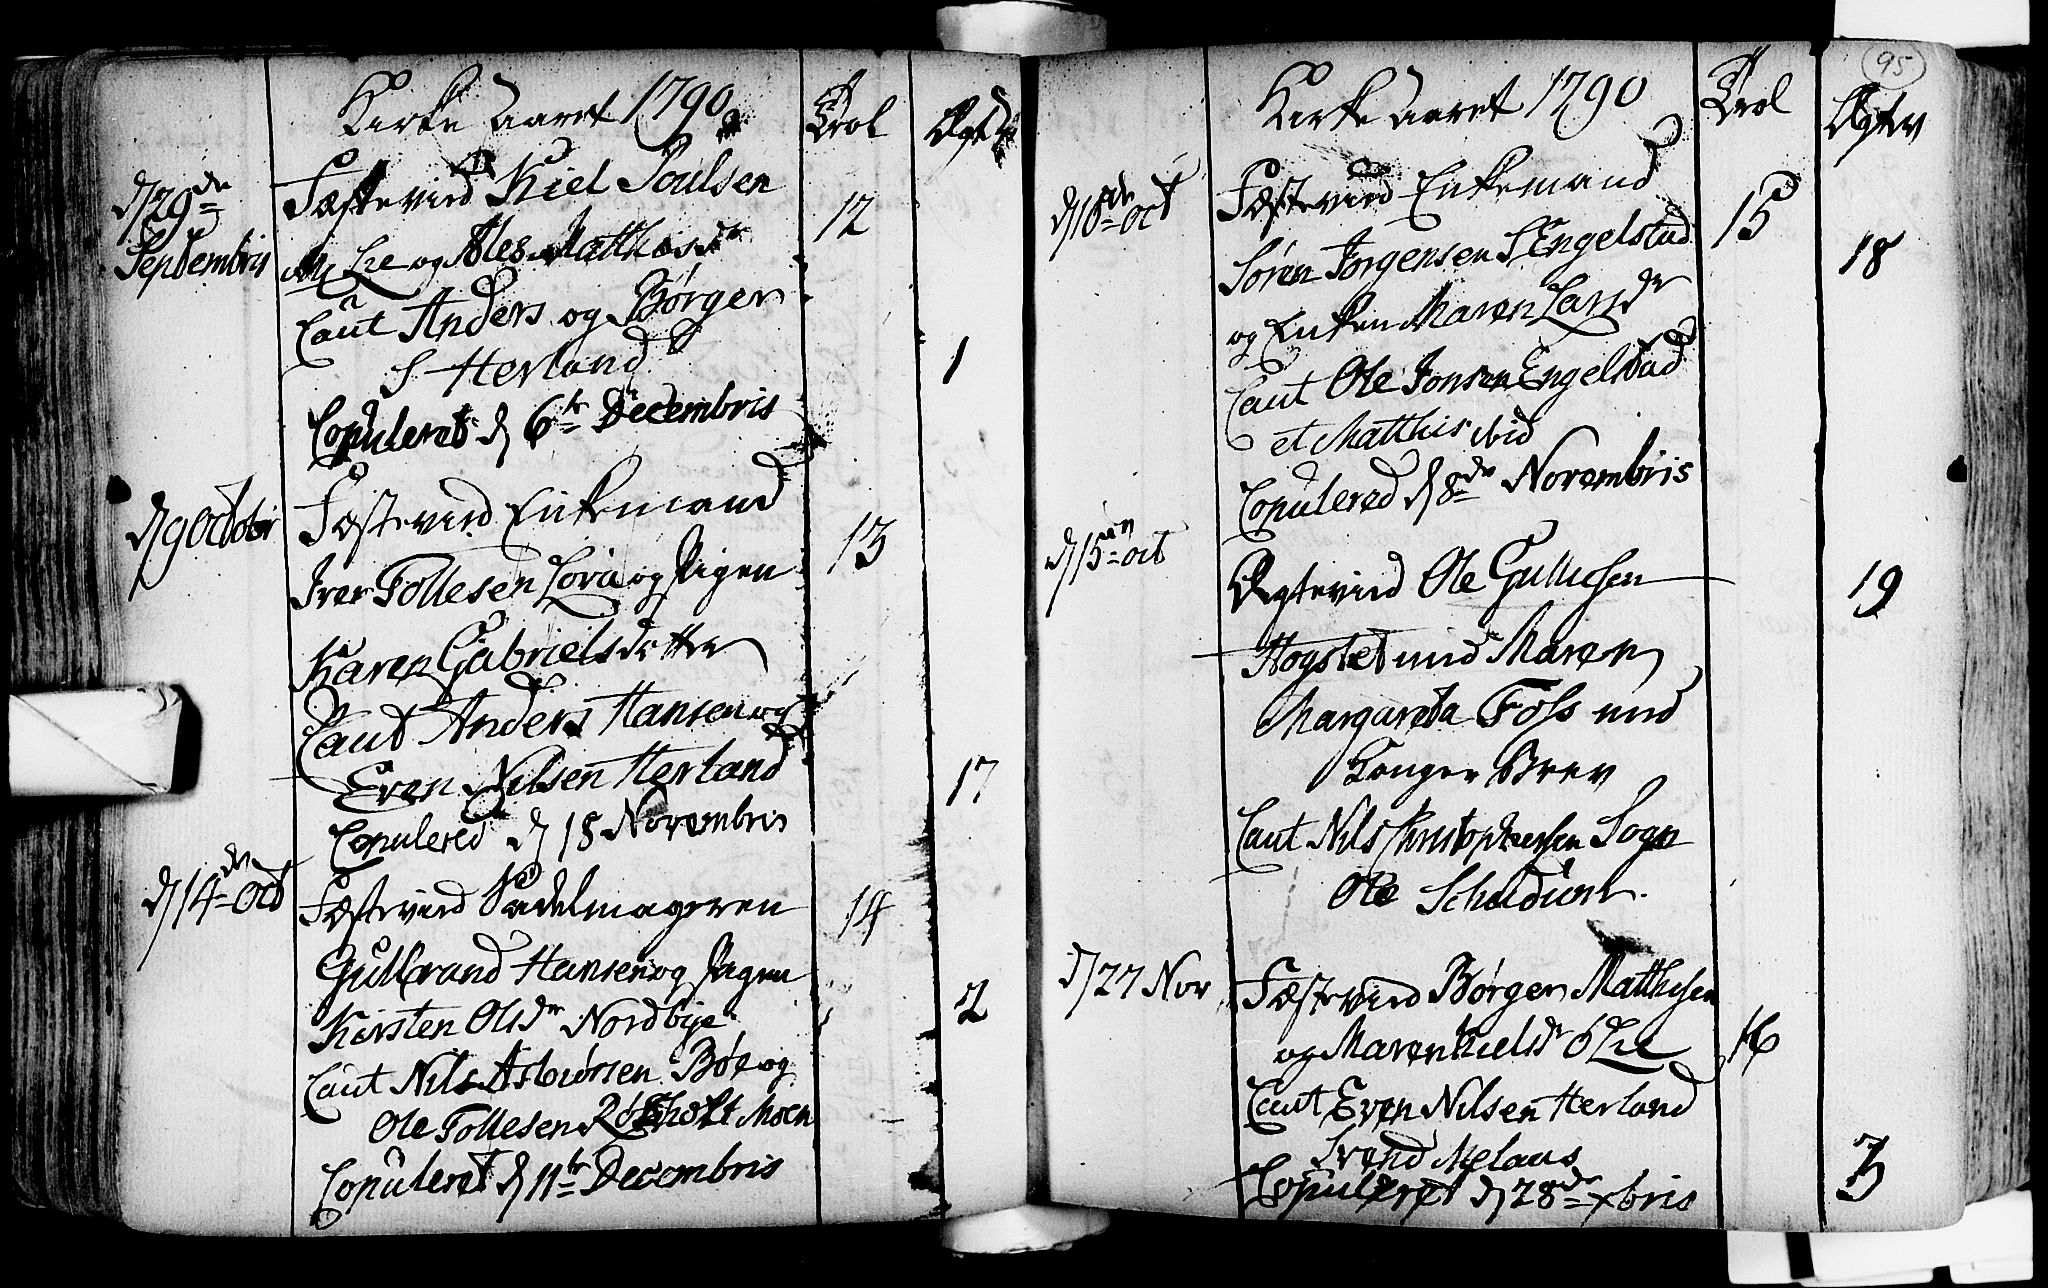 Kirke Aaret 1790
Trol
Ægtev
d 29de
Septembris
Fæstevied Kiel Poulsen
Lie og Ales Matthæsdr
Caut Anders og Børger
S Herland
Copuleret d 6te Decembris
12
1
d 9 October
Fæstevied Enkemand
Iver Tollesen Lova og Pigen
Karen Gabrielsdatter
Caut Anders Hansen og
Even Nilsen Herland
Copulered d 18 Novembris
13
17
d 14de Oct
Fæstevied Sadelmageren
Gulbrand Hansen og Pigen
Kirsten Olsdr Nordbye
Caut Nils Asbiørsen Bøe og
Ole Tollesen Røkholt Moen
Copuleret d 11te Decembris
14
2
95
Kirke Aaret 1790
Trol
Ægtev
d 10de Oct
Fæstevied Enkemand
Søren Jorgensen S Engelstad
og Enken Maren Larsdr
Caut Ole Jonsen Engelstad
et Matthis ibid
Copulered d 8de Novembris
15
18
d 15en oct
Ægtevied Ole Gullichsen
Hogstet med Maren
Margareta Foss med
Konger Brev
Caut Nils Christophersen Sogn
Ole
19
d 27 Nov
Fæstevied Børger Matthisen
og Maren Kielsdr Ø Lie
Caut Even Nilsen Herland
Svend Melaas
Copuleret d 28de xbris
16
3